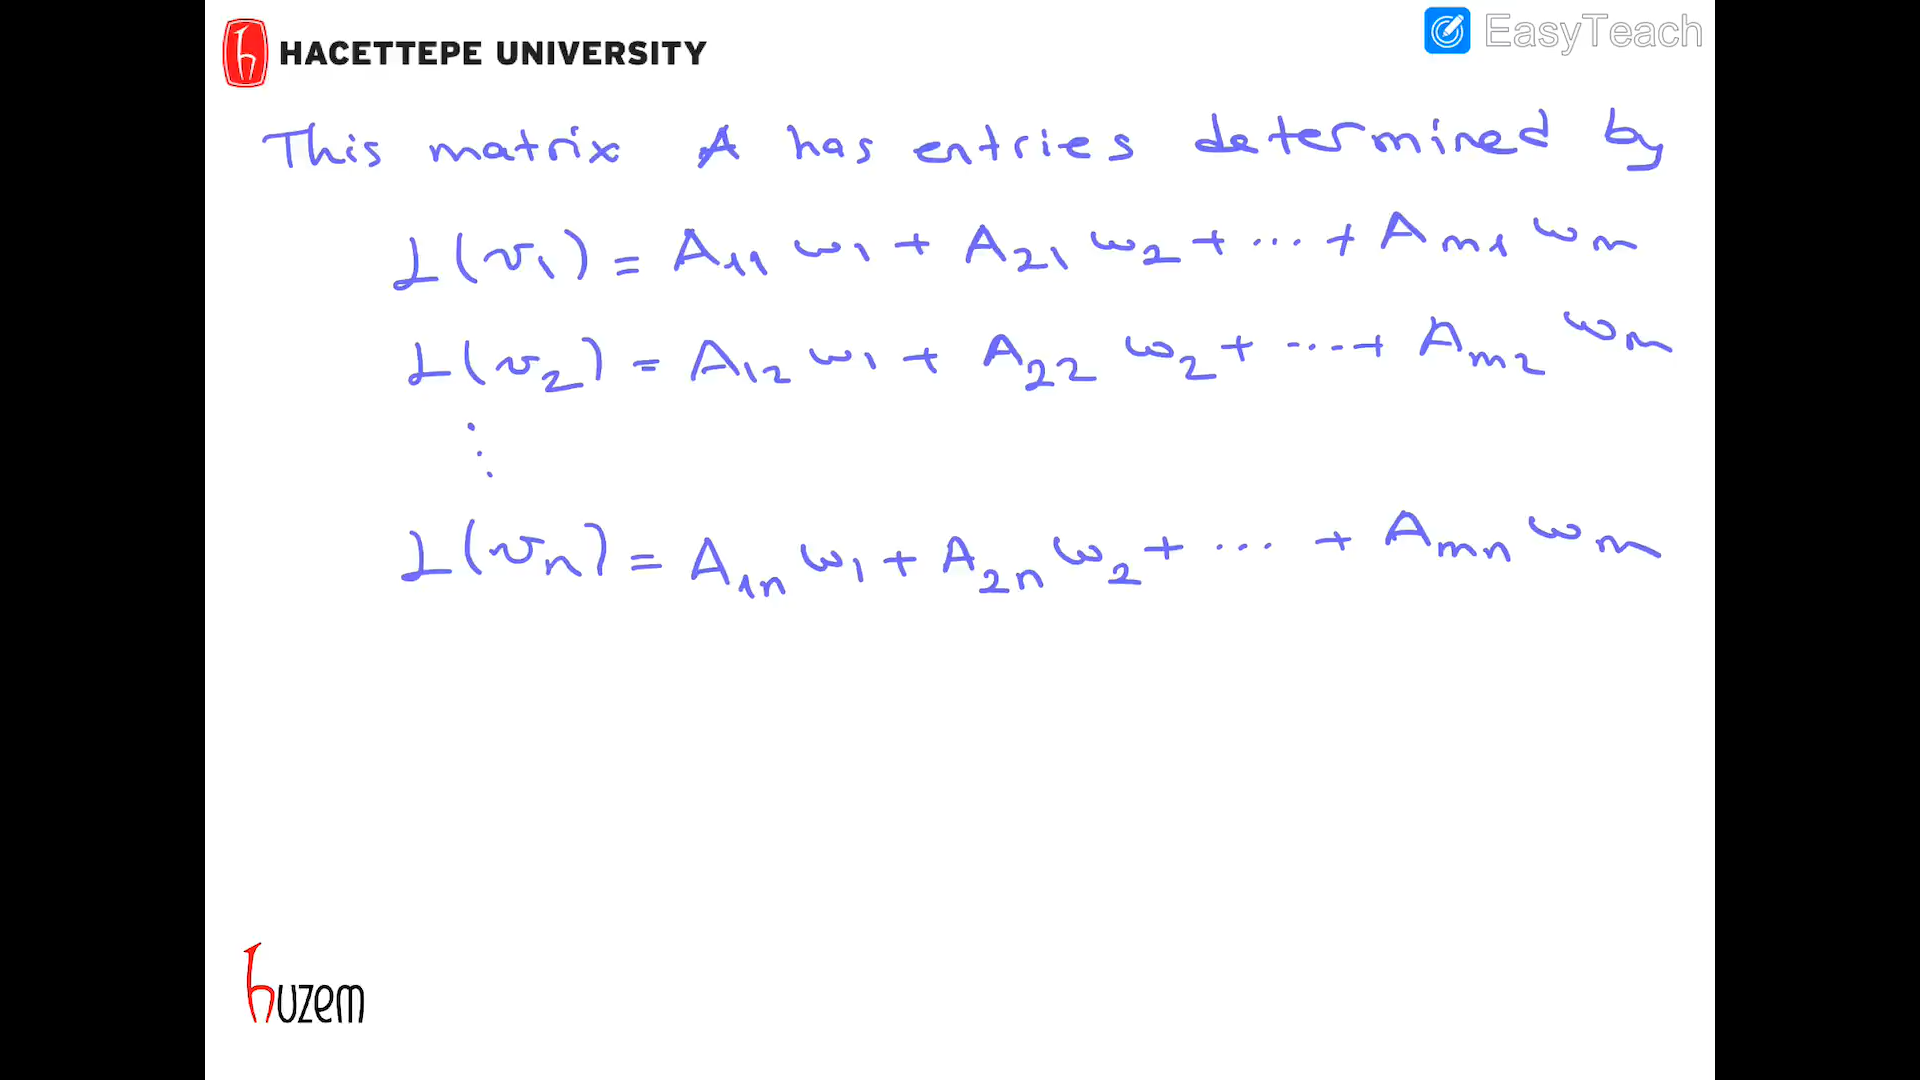 HACETTEPE UNIVERSITY
EasyTeach
This matrix A has entries determined by
L(v₁) = A₁₁ w₁ + A₂₁ w₂ + ... + Aₘ₁ wₘ
L(v₂) = A₁₂ w₁ + A₂₂ w₂ + ... + Aₘ₂ wₘ
⋮
L(vₙ) = A₁ₙ w₁ + A₂ₙ w₂ + ... + Aₘₙ wₘ
huzem